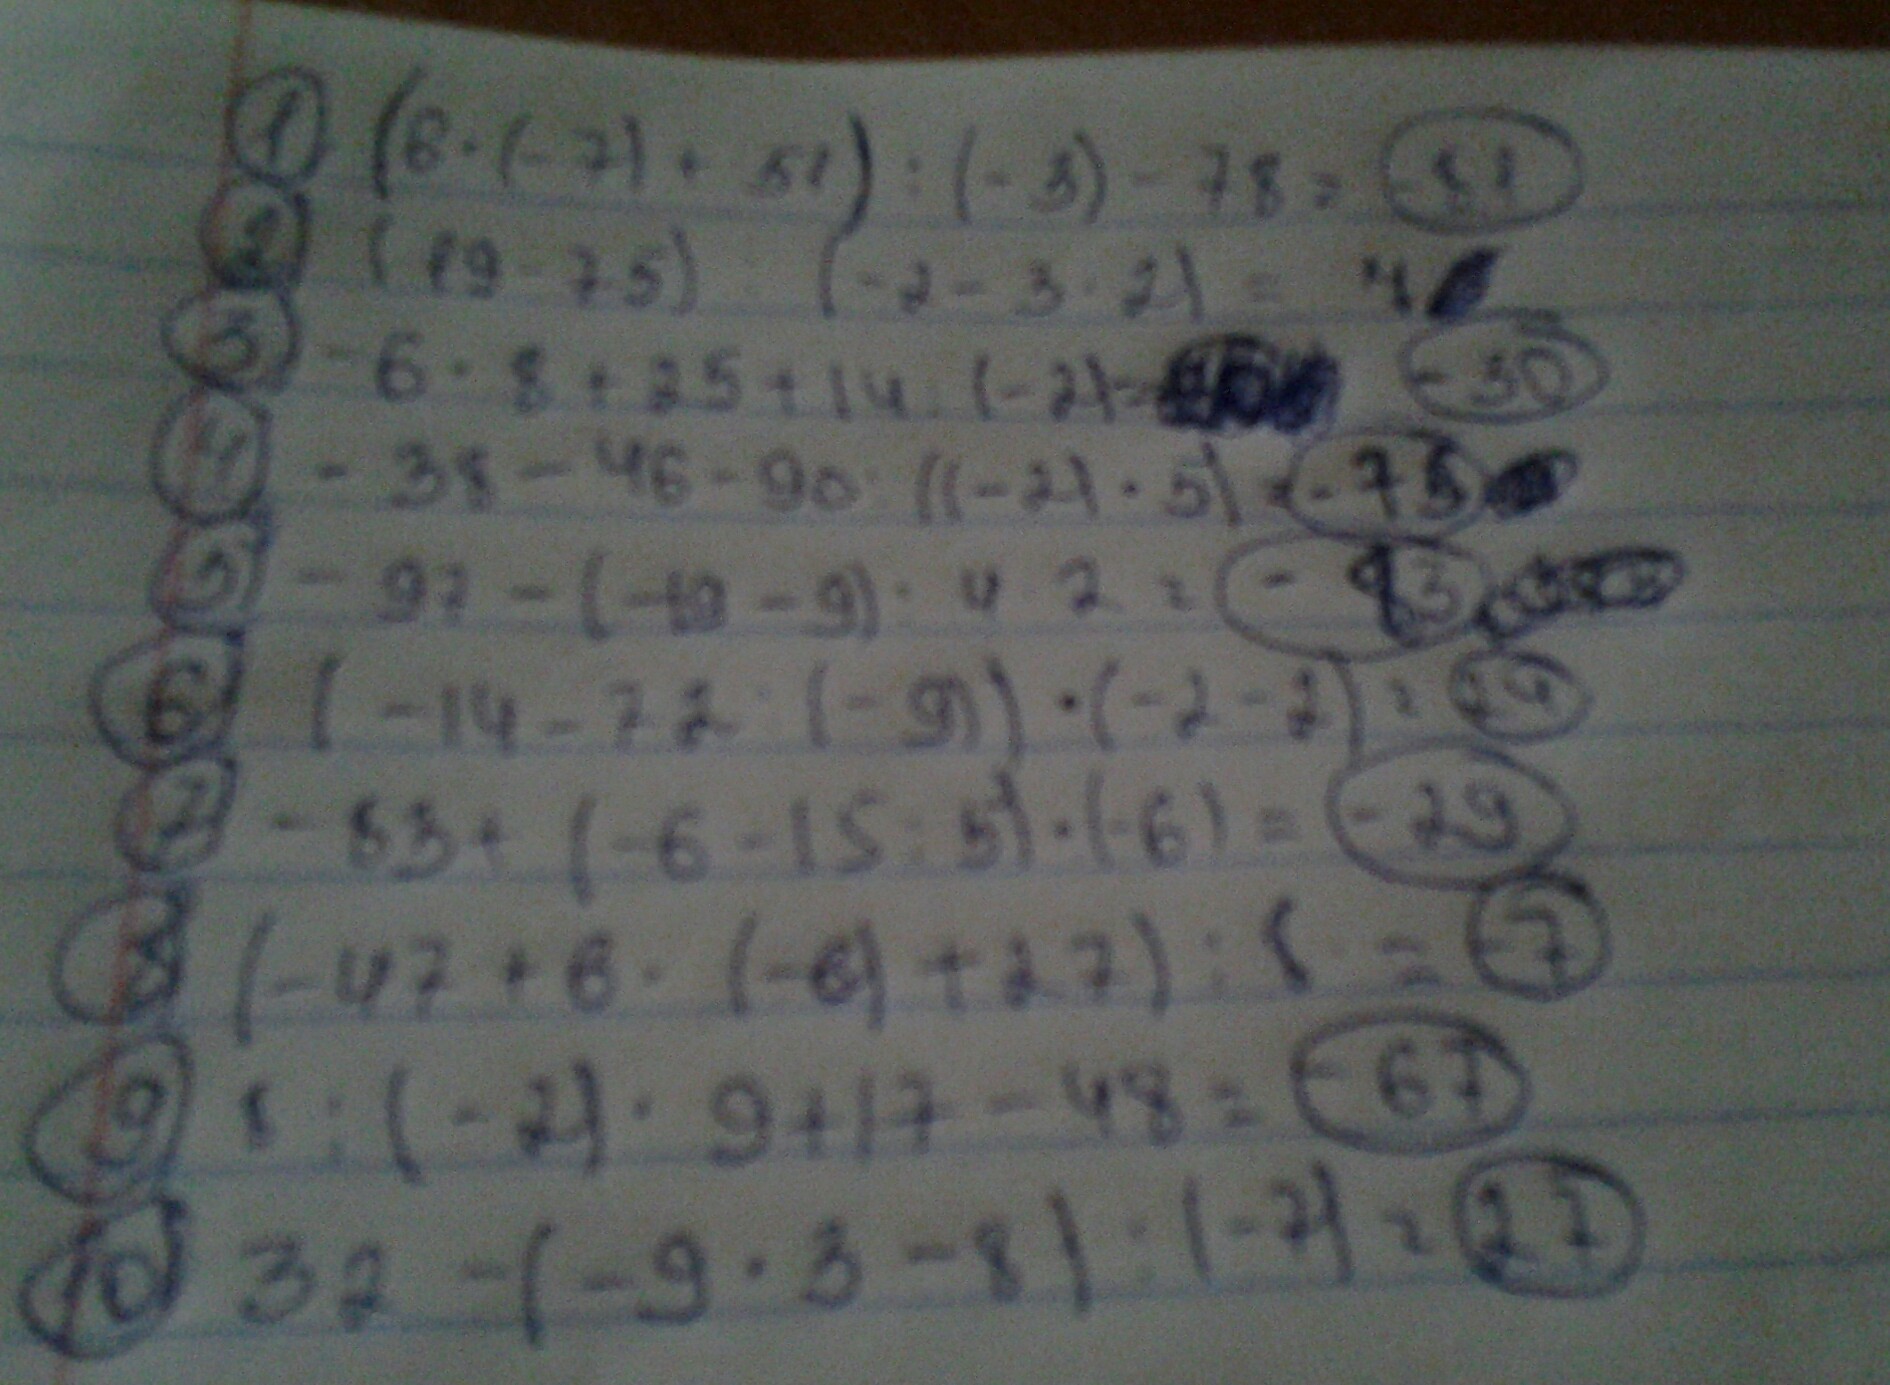 1 (6·(-7)+51):(-3)-78= -81
2 (19-75):(-2-3·2)=
3 -6·8+25+14:(-2)= -30
4 -38-46-90:((-2)·5)= -75
5 -97-(-19-9): 4 2 = -83
6 (-14-72:(-9))·(-2-2)= 24
7 -83+(-6-15:5)·(-6)= -29
8 (-47+6·(-6)+27):8= -7
9 8:(-2)·9+17-48= -67
10 32-(-9·3-8):(-7)= 27